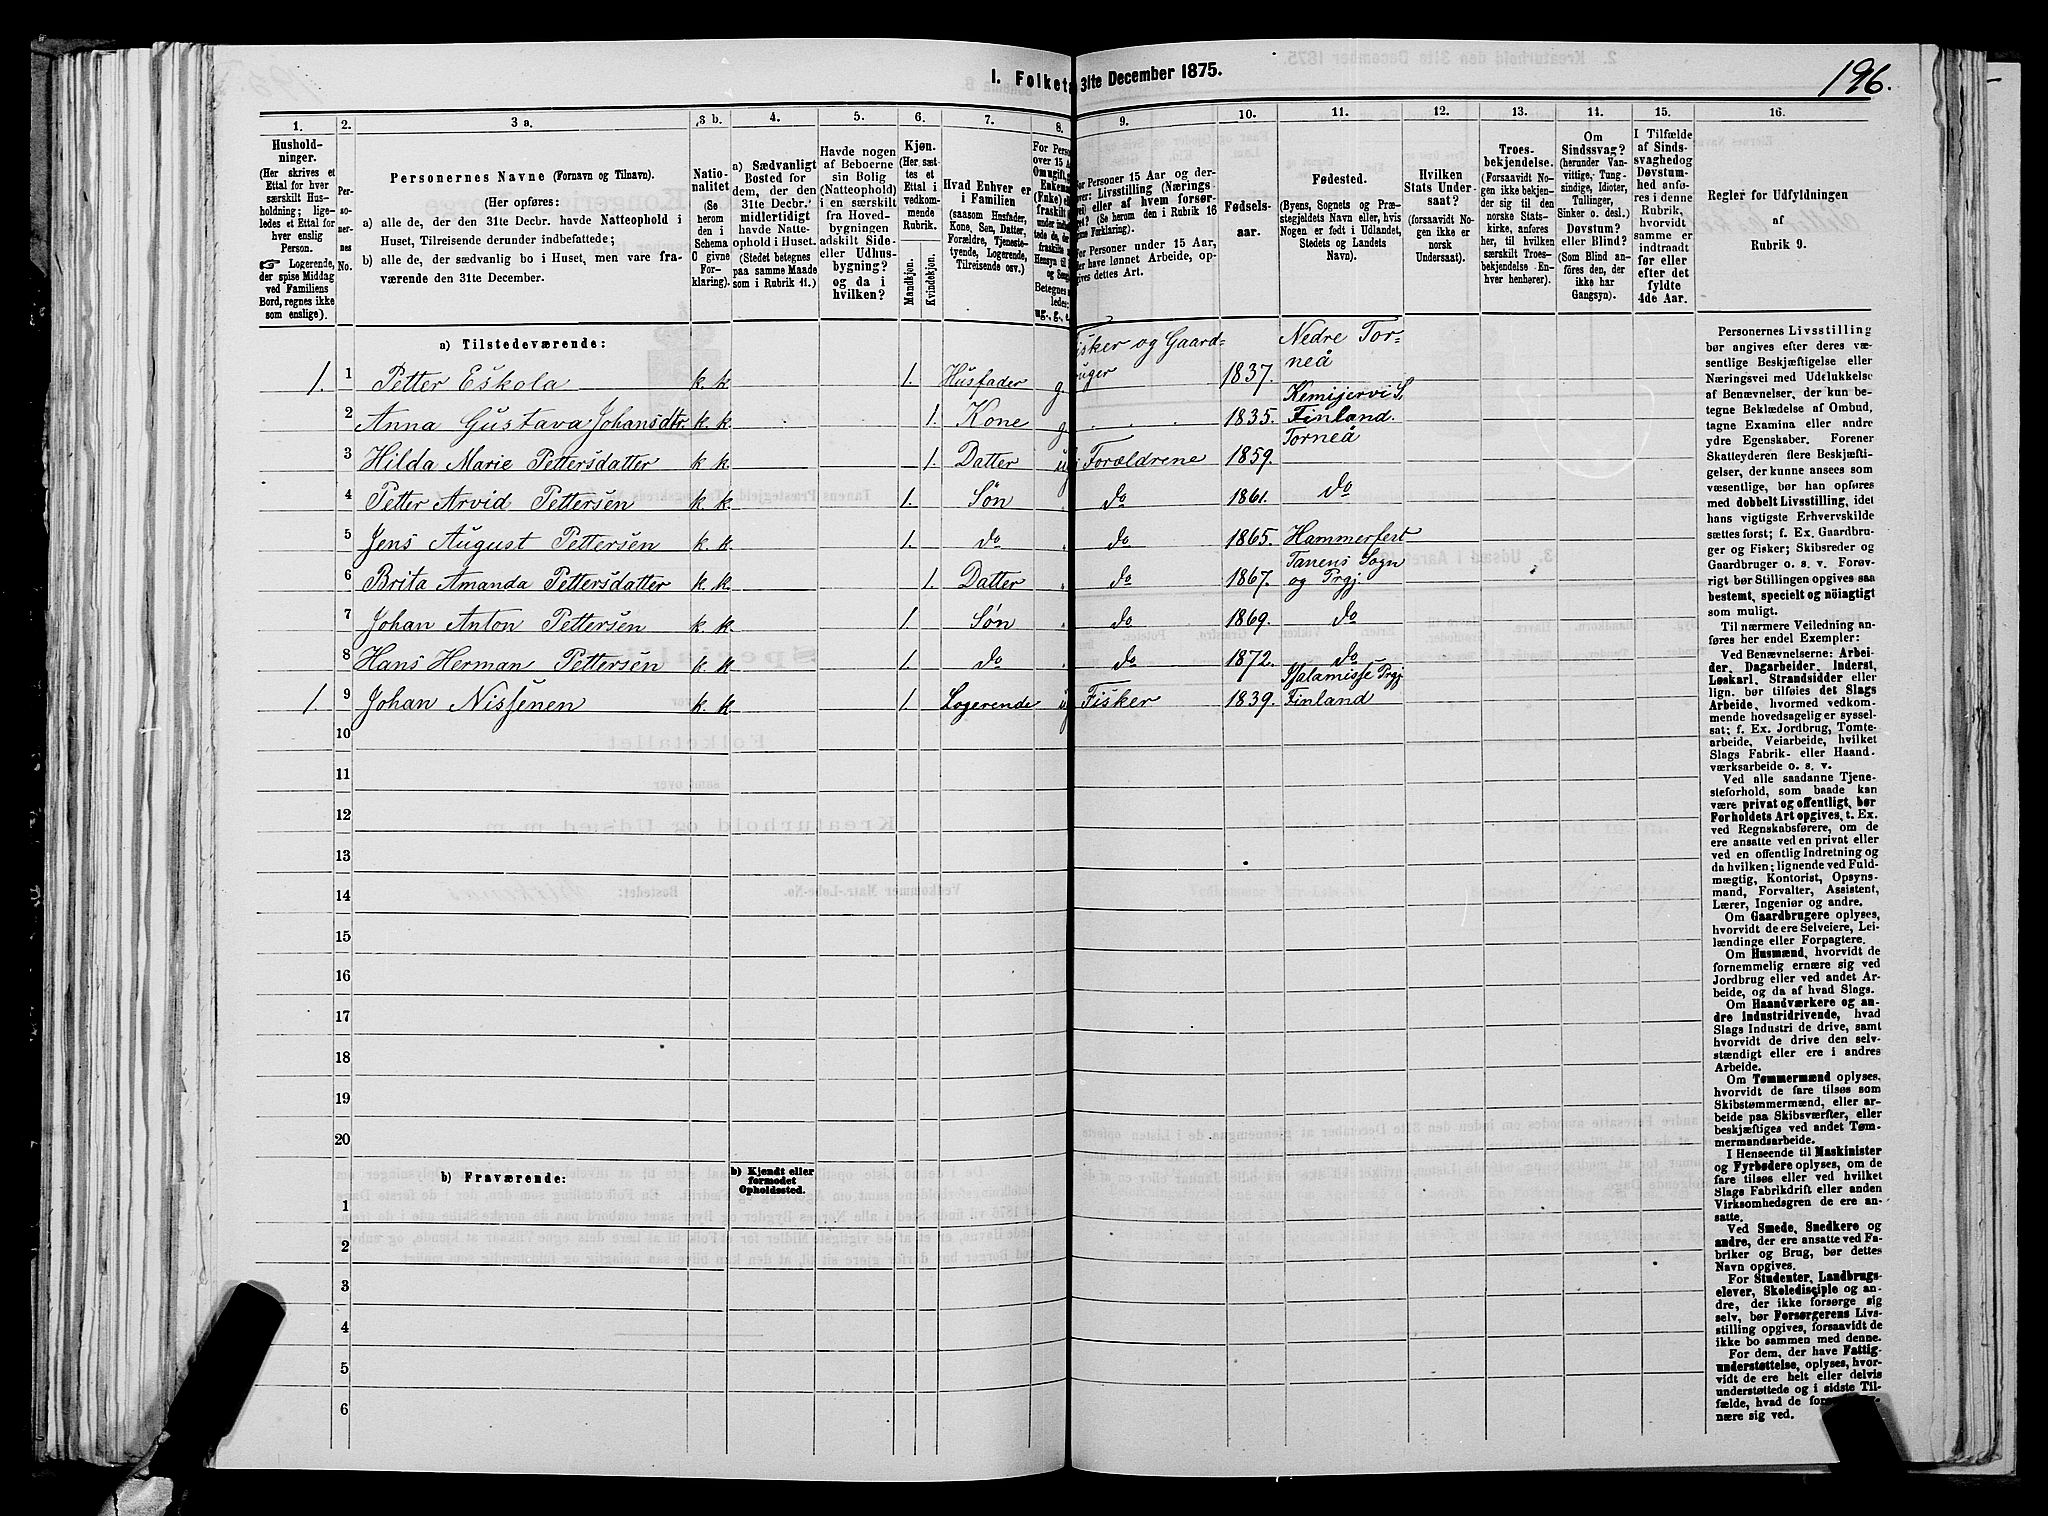 I. Folketa 31te December 1875.
196.
1.
2.
3 a.
3 b.
4.
5.
6.
7.
8.
9.
10.
11.
12.
13.
14.
15.
16.
Hushold-
ninger.
(Her skrives et
Ettal for hver
særskilt Hus-
holdning; lige-
ledes et Ettal for
hver enslig
Person.
☞ Logerende,
der spise Middag
ved Familiens
Bord, regnes ikke
som enslige).
Per-
so-
ner-
nes
No.
Personernes Navne (Fornavn og Tilnavn).
(Her opføres:
a) alle de, der den 31te Decbr. havde Natteophold i
Huset, Tilreisende derunder indbefattede;
b) alle de, der sædvanlig bo i Huset, men vare fra-
værende den 31te December.
Natio-
nalitet
(Se
herom
den i
Schema
C givne
For-
klaring).
a) Sædvanligt
Bosted for
dem, der den
31te Decbr.
midlertidigt
havde Natte-
ophold i Huset.
(Stedet betegnes
paa samme Maade
som i Rubrik 11.)
Havde nogen
af Beboerne
sin Bolig
(Natteophold)
i en særskilt
fra Hoved-
bygningen
adskilt Side-
eller Udhus-
bygning?
og da i
hvilken?
Kjøn.
(Her sæt-
tes et
Ettal i
vedkom-
mende
Rubrik.
Mandkjøn.
Kvindekjøn.
Hvad Enhver er
i Familien
(saasom Husfader,
Kone, Søn, Datter,
Forældre, Tjeneste-
tyende, Logerende,
Tilreisende osv.)
For Perso
over 15 A
Betegnes
ug., g., e.
For Personer 15 Aar og der-
Livsstilling (Nærings
eller af hvem forsør-
(Se herom den i Rubrik 16
Forklaring).
For Personer under 15 Aar,
have lønnet Arbeide, op-
gives dettes Art.
Fødsels-
aar.
Fødested.
(Byens, Sognets og Præ-
stegjeldets Navn eller, hvis
Nogen er født i Udlandet,
Stedets og Landets
Navn).
Hvilken
Stats Under-
saat?
(forsaavidt No-
gen ikke er
norsk
Undersaat).
Troes-
bekjendelse.
(Forsaavidt No-
gen ikke bekjen-
der sig til den
norske Stats-
kirke, anføres
her, til hvilken
særskilt Troes-
bekjendelse En-
hver henhører).
Om
Sindssvag?
(herunder Van-
vittige, Tung-
sindige, Idioter,
Tullinger,
Sinker o. desl.)
Døvstum?
eller Blind?
(Som Blind an-
føres den, der
ikke har
Gangsyn).
I Tilfælde
af Sinds-
svaghedog
Døvstum-
hed anfø-
res i denne
Rubrik,
hvorvidt
samme er
indtraadt
før eller
efter det
fyldte
4de Aar.
Regler for Udfyldningen
af
Rubrik 9.
a) Tilstedeværende:
1. 1 Petter Eskola k. k 1. Husfader g. Fisker og Gaardbruger 1837. Nedre Torneå
2 Anna Gustava Johansdtr. k. k. 1. Kone g. 1835. Kemijervi S. Finland.
3 Hilda Marie Pettersdatter k. k 1. Datter ug Forældrene 1859. Torneå
4 Petter Arvid Pettersen k. k. 1. Søn " do 1861. do
5 Jens August Pettersen k. k. 1. do " do 1865. Hammerfest
6 Brita Amanda Pettersdatter k. k. 1. Datter " do 1867. Tanens Sogn og Prgj.
7 Johan Anton Pettersen k. k. 1. Søn " do 1869. do
8 Hans Herman Pettersen k. k 1. do " do 1872. do
1 9 Johan Nissenen k. k 1. Logerende ug Fisker 1839. Finland
10
11
12
13
14
15
16
17
18
19
20
b) Fraværende:
b) Kjendt eller
formodet
Opholdssted.
1
2
3
4
5
6
Personernes Livsstilling
bør angives efter deres væ-
sentlige Beskjæftigelse eller
Næringsvei med Udelukkelse
af Benævnelser, der kun be-
tegne Beklædelse af Ombud,
tagne Examina eller andre
ydre Egenskaber. Forener
Skatteyderen flere Beskjæfti-
gelser, der kunne ansees som
væsentlige, bør han opføres
med dobbelt Livsstilling, idet
hans vigtigste Erhvervskilde
sættes først; f. Ex. Gaardbru-
ger og Fisker; Skibsreder og
Gaardbruger o. s. v. Forøv-
rigt bør Stillingen opgives saa
bestemt, specielt og nöiagtigt
som muligt.
Til nærmere Veiledning an-
føres her endel Exempler:
Ved Benævnelserne: Arbei-
der, Dagarbeider, Inderst,
Løskarl, Strandsidder eller
lign. bør tilføies det Slags
Arbeide, hvormed vedkom-
mende hovedsagelig er syssel-
sat; f. Ex. Jordbrug, Tomte-
arbeide, Veiarbeide, hvilket
Slags Fabrik- eller Haand-
værksarbeide o. s. v.
Ved alle saadanne Tjene-
steforhold, som baade kan
være privat og offentligt, bør
Forholdets Art opgives, t. Ex.
ved Regnskabsførere, om de
ere ansatte ved en privat eller
ved en offentlig Indretning og
da hvilken; lignende ved Fuld-
mægtig, Kontorist, Opsyns-
mand, Forvalter, Assistent,
Lærer, Ingeniør og andre.
Om Gaardbrugere oplyses,
hvorvidt de ere Selveiere, Lei-
lændinge eller Forpagtere.
Om Husmænd, hvorvidt de
fornemmelig ernære sig ved
Jordbrug eller ved andet Ar-
beide, og da af hvad Slags.
Om Haandværkere og an-
dre industridrivende, hvad
Slags Industri de drive, samt
hvorvidt de drive den selv-
stændigt eller ere i andres
Arbeide.
Om Tømmermænd oplyses,
hvorvidt de fare tilsøs som
Skibstømmermænd, eller ar-
beide paa Skibsværfter, eller
beskjæftiges ved andet Tøm-
mermandsarbeide.
I Henseende til Maskinister
og Fyrbødere oplyses, om de
fare tilsøs eller ved hvilket
Slags Fabrikdrift eller anden
Virksomhedsgren de ere an-
satte.
Ved Smede, Snedkere og
andre, der ere ansatte ved Fa-
briker og Brug, bør dettes
Navn opgives.
For Studenter, Landbrugs-
elever, Skoledisciple og an-
dre, der ikke forsørge sig
selv, bør Forsørgerens Livs-
stilling opgives, forsaavidt de
ikke bo sammen med denne.
For dem, der have Fattig-
understøttelse, oplyses, hvor-
vidt de ere helt eller delvis
understøttede og i sidste Til-
fælde, hvad de
nære sig ved.